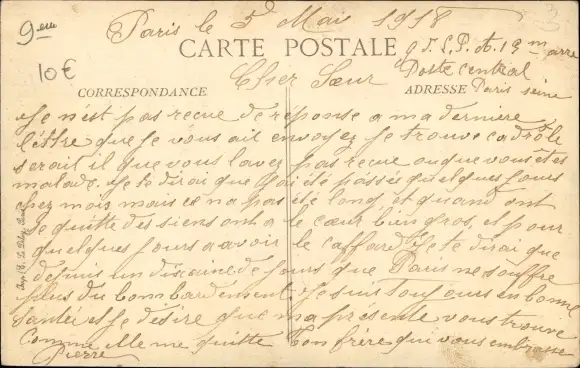 9eme
Paris le 5 Mai 1918
3
CARTE POSTALE
10€
Cher Sœur
Poste central
Paris seine
CORRESPONDANCE
ADRESSE
Je n'est pas recue de réponse a ma derniere
lettre que je vous ait envoyez je trouve ca drôle
serait il que vous lavez pas recue ou que vous êtes
malade. Je te dirai que j'ai été passés quelques jours
chez mois mais ce na pas été long, et quand ont
se quitte des siens ont a le cœur bien gros, et pour
quelques jours a avoir le caffard. Je te dirai que
depuis un disaine de jours que Paris ne souffre
plus du bombardement. Je suis toujours en bonne
santée et je désire que ma présente vous trouve
Comme elle me quitte Ton frère qui vous embrasse
Pierre